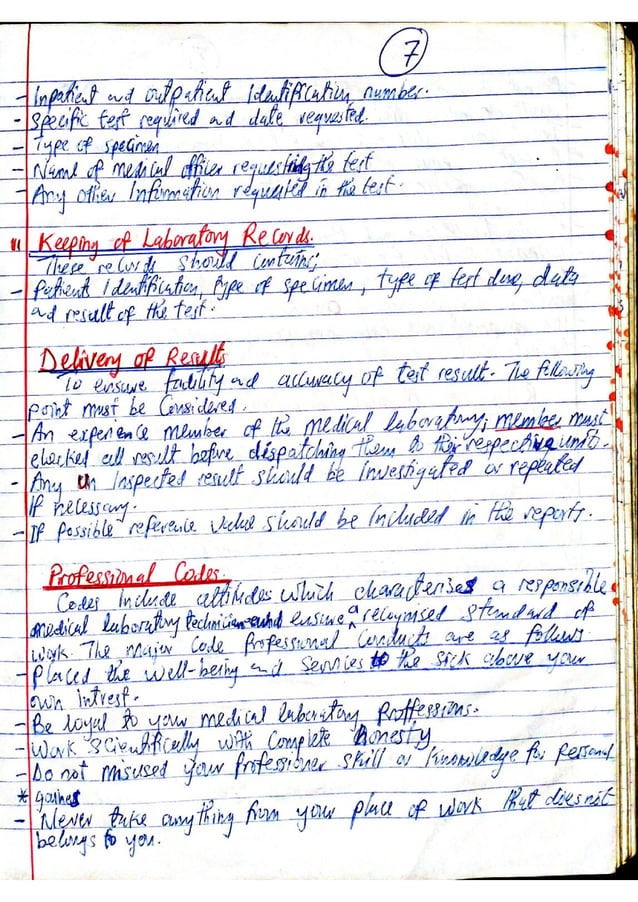 7
- Inpatient and outpatient Identification number.
- Specific test required and date requested.
- Type of specimen
- Name of medical officer requesting the test
- Any other Information requested in the test.
Keeping of Laboratory Records.
These records should contains;
- Patients Identification, type of specimen, type of test done, data
and result of the test.
Delivery of Results
To ensure facility and accuracy of test result. The following
point must be Considered.
- An experience member of the medical laboratory, member must
checked all result before dispatching them to their respective unit.
- Any un Inspected result should be Investigated or repeated
If necessary.
- If possible reference value should be Included in the reports.
Professional Codes.
Codes Include attitudes which characterises a responsible
medical laboratory technician and ensure a recognised standard of
work. The major Code Professional Conducts are as follows
- Placed the well-being and services to the sick above your
own Intrest.
- Be loyal to your medical laboratory Proffessions.
- Work Scientifically with Complete honesty
- Do not misused your Professioner skill or knowledge for personal
* gaines
- Never take anything from your place of work that does not
belongs to you.